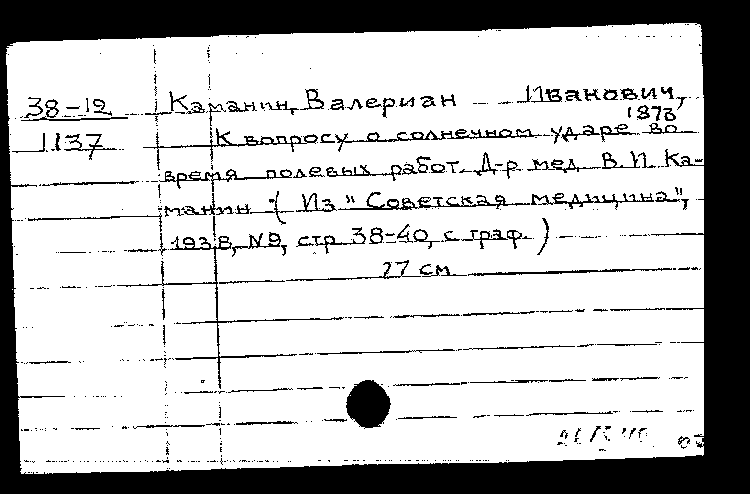 38-12 Каманин, Валериан Иванович,
1873
1137 К вопросу о солнечном ударе во
время полевых работ. Д-р мед. В. И. Ка-
манин. (Из "Советская медицина",
1938, №9, стр. 38-40, с граф.)
27 см.